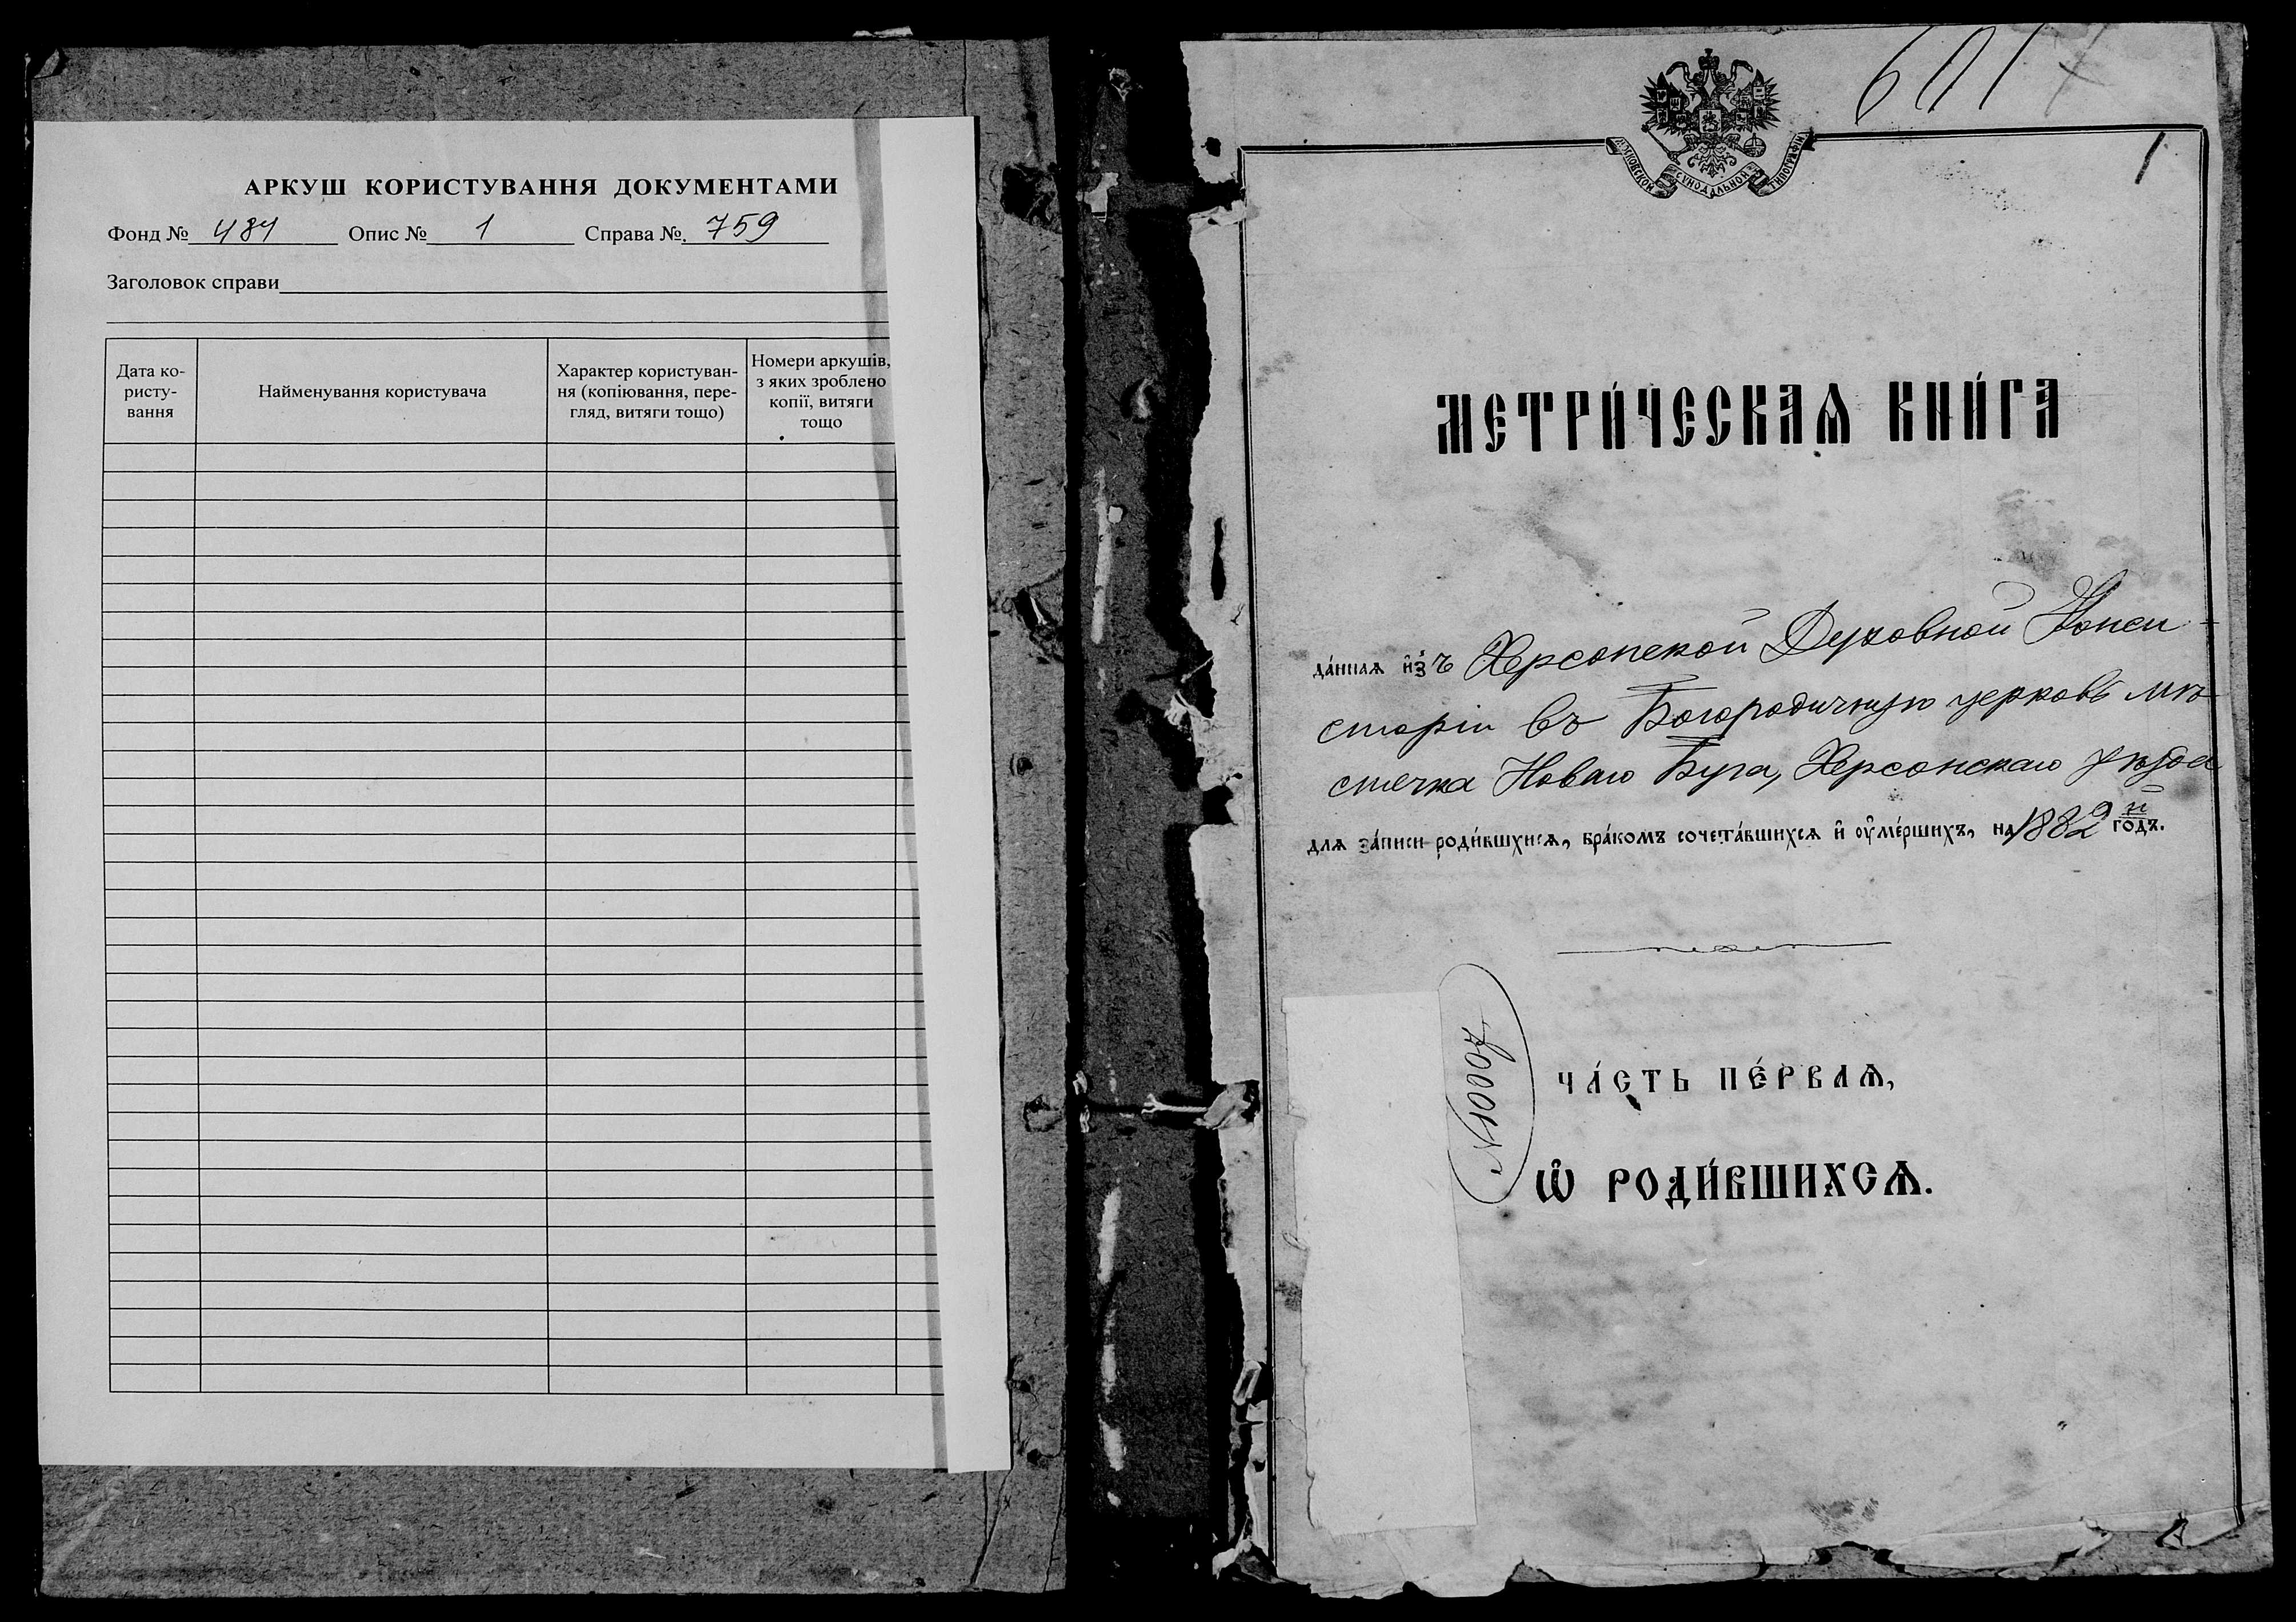 АРКУШ КОРИСТУВАННЯ ДОКУМЕНТАМИ
Фонд № 484 Опис № 1 Справа № 759
Заголовок справи
Дата ко-
ристу-
вання
Найменування користувача
Характер користуван-
ня (копіювання, пере-
гляд, витяги тощо)
Номери аркушів,
з яких зроблено
копії, витяги
тощо
1
МОСКОВСКОЙ СѴНОДАЛЬНОЙ ТИПОГРАФІИ
МЕТРИ́ЧЕСКАѦ КНИ́ГА
да́ннаѧ и҆́зъ Херсонской Духовной Конси-
сторіи въ Богородичную церковь мѣ-
стечка Новаго Буга, Херсонскаго уѣзда
длѧ за́писи роди́вшихсѧ, бра́комъ сочета́вшихсѧ и҆ ᲂу҆ме́ршихъ, на 1882й го́дъ.
№ 10007
ЧА́СТЬ ПЕ́РВАѦ,
Ѽ РОДИ́ВШИХСѦ.